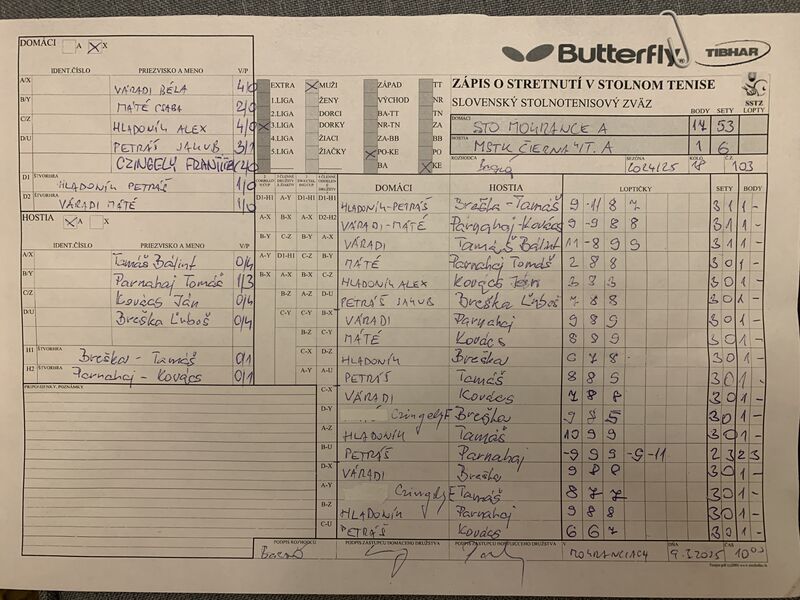 DOMÁCI A X
Butterfly TIBHAR
IDENT.ČÍSLO PRIEZVISKO A MENO V/P
A/X VÁRADI BÉLA 4/0
B/Y MÁTÉ CSABA 2/0
C/Z HLADONIK ALEX 4/0
D/U PETRÁŠ JAKUB 3/1
CZINGELY FRANTIŠEK 2/0
D1 ŠTVORHRA HLADONIK PETRÁŠ 1/0
D2 VÁRADI MÁTÉ 1/0
EXTRA MUŽI ZÁPAD TT
1.LIGA ŽENY VÝCHOD NR
2.LIGA DORCI BA-TT TN
3.LIGA DORKY NR-TN ZA
4.LIGA ŽIACI ZA-BB BB
5.LIGA ŽIAČKY PO-KE PO
BA KE
ZÁPIS O STRETNUTÍ V STOLNOM TENISE
SLOVENSKÝ STOLNOTENISOVÝ ZVÄZ SSTZ
BODY SETY LOPTY
DOMÁCI STO MOKRANCE A 17 53
HOSTIA MSTK ČIERNA N/T. A 1 6
ROZHODCA SEZÓNA 2024/25 KOLO Č.Z. 103
HOSTIA A X
IDENT.ČÍSLO PRIEZVISKO A MENO V/P
A/X Tamáš Bálint 0/4
B/Y Parnahaj Tomáš 1/3
C/Z Kovács Ján 0/4
D/U Breška Ľuboš 0/4
H1 ŠTVORHRA Breška - Tamáš 0/1
H2 ŠTVORHRA Parnahaj - Kovács 0/1
PRIPOMIENKY, POZNÁMKY
DOMÁCI HOSTIA LOPTIČKY SETY BODY
HLADONIK-PETRÁŠ Breška - Tamáš 9 -11 8 7 3 1 1 -
VÁRADI-MÁTÉ Parnahaj-Kovács 9 -9 8 8 3 1 1 -
VÁRADI Tamáš Bálint 11 -8 9 9 3 1 1 -
MÁTÉ Parnahaj Tomáš 2 8 8 3 0 1 -
HLADONIK ALEX Kovács Ján 3 8 3 3 0 1 -
PETRÁŠ JAKUB Breška Ľuboš 7 8 8 3 0 1 -
VÁRADI Parnahaj 9 8 9 3 0 1 -
MÁTÉ Kovács 8 8 9 3 0 1 -
HLADONIK Breška 6 7 8 3 0 1 -
PETRÁŠ Tamáš 8 8 9 3 0 1 -
C-X VÁRADI Kovács 7 8 8 3 0 1 -
D-Y Czingely F Breška 9 8 5 3 0 1 -
A-Z HLADONIK Tamáš 10 9 9 3 0 1 -
B-U PETRÁŠ Parnahaj -9 9 9 -9 -11 2 3
D-X VÁRADI Breška 9 8 8 3 0 1 -
A-Y Czingely F Tamáš 8 7 7 3 0 1 -
B-Z HLADONIK Parnahaj 9 8 8 3 0 1 -
C-U PETRÁŠ Kovács 6 6 7 3 0 1 -
PODPIS ROZHODCU PODPIS ZÁSTUPCU DOMÁCEHO DRUŽSTVA PODPIS ZÁSTUPCU HOSŤUJÚCEHO DRUŽSTVA V MOKRANCIACH DŇA 9.3.2025 ČAS 10 00